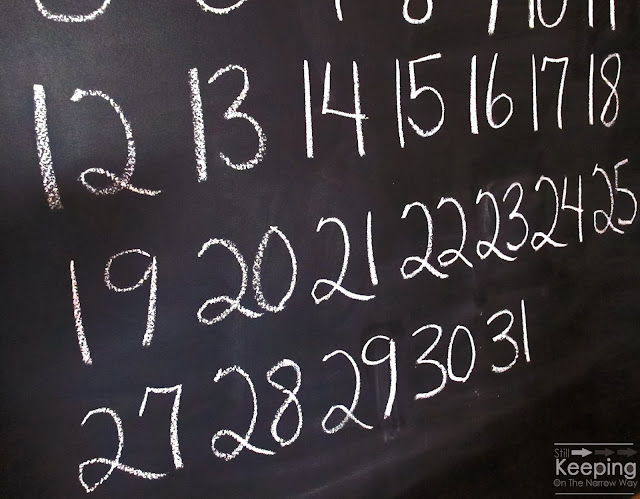 10 11
12 13 14 15 16 17 18
19 20 21 22 23 24 25
27 28 29 30 31
Still
Keeping
On The Narrow Way